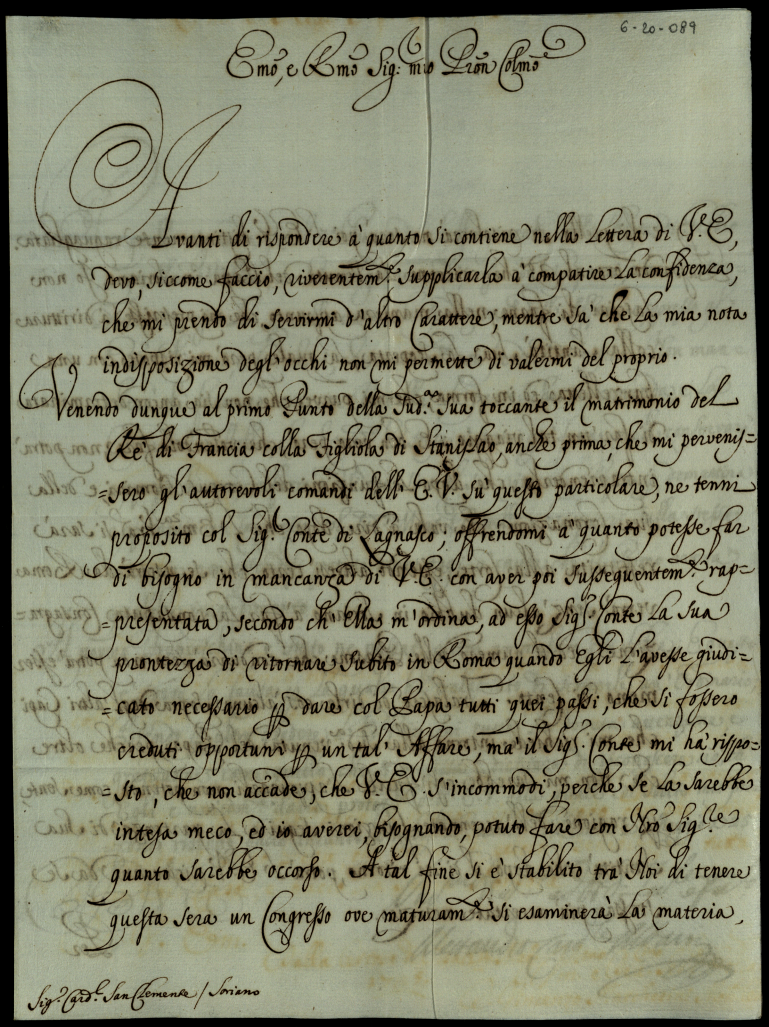 6-20-089
Emo, e Rmo Sig: mio Pron Colmo
Avanti di rispondere à quanto si contiene nella Lettera di V.E,
devo, siccome faccio, riverentem.e supplicarla à compatire la confidenza,
che mi prendo di servirmi d'altro Carattere, mentre sà che la mia nota
indisposizione degl'occhi non mi permette di valermi del proprio.
Venendo dunque al primo Punto della Sud.a sua toccante il matrimonio del
Rè di Francia colla Figliola di Stanislao, anche prima, che mi pervenis=
=sero gl'autorevoli comandi dell'E.V. sù questo particolare, ne tenni
proposito col Sig.r Conte di Lagnasco; offrendomi à quanto potesse far
di bisogno in mancanza di V.E. con aver poi sussequentem.e rap=
=presentata, secondo ch'Ella m'ordina, ad esso Sig.r Conte la sua
prontezza di ritornare subito in Roma quando Egli l'avesse giudi=
=cato necessario p dare col Papa tutti quei passi, che si fossero
creduti opportuni p un tal'Affare, mà il Sig.r Conte mi hà rispo=
=sto, che non accade, che V.E. s'incommodi, perche se la sarebbe
intesa meco, ed io averei, bisognando, potuto fare con Nro Sig.re
quanto sarebbe occorso. A tal fine si è stabilito trà Noi di tenere
questa sera un Congresso ove maturam.e si esaminerà la materia,
Sig.r Card.l San Clemente / Soriano